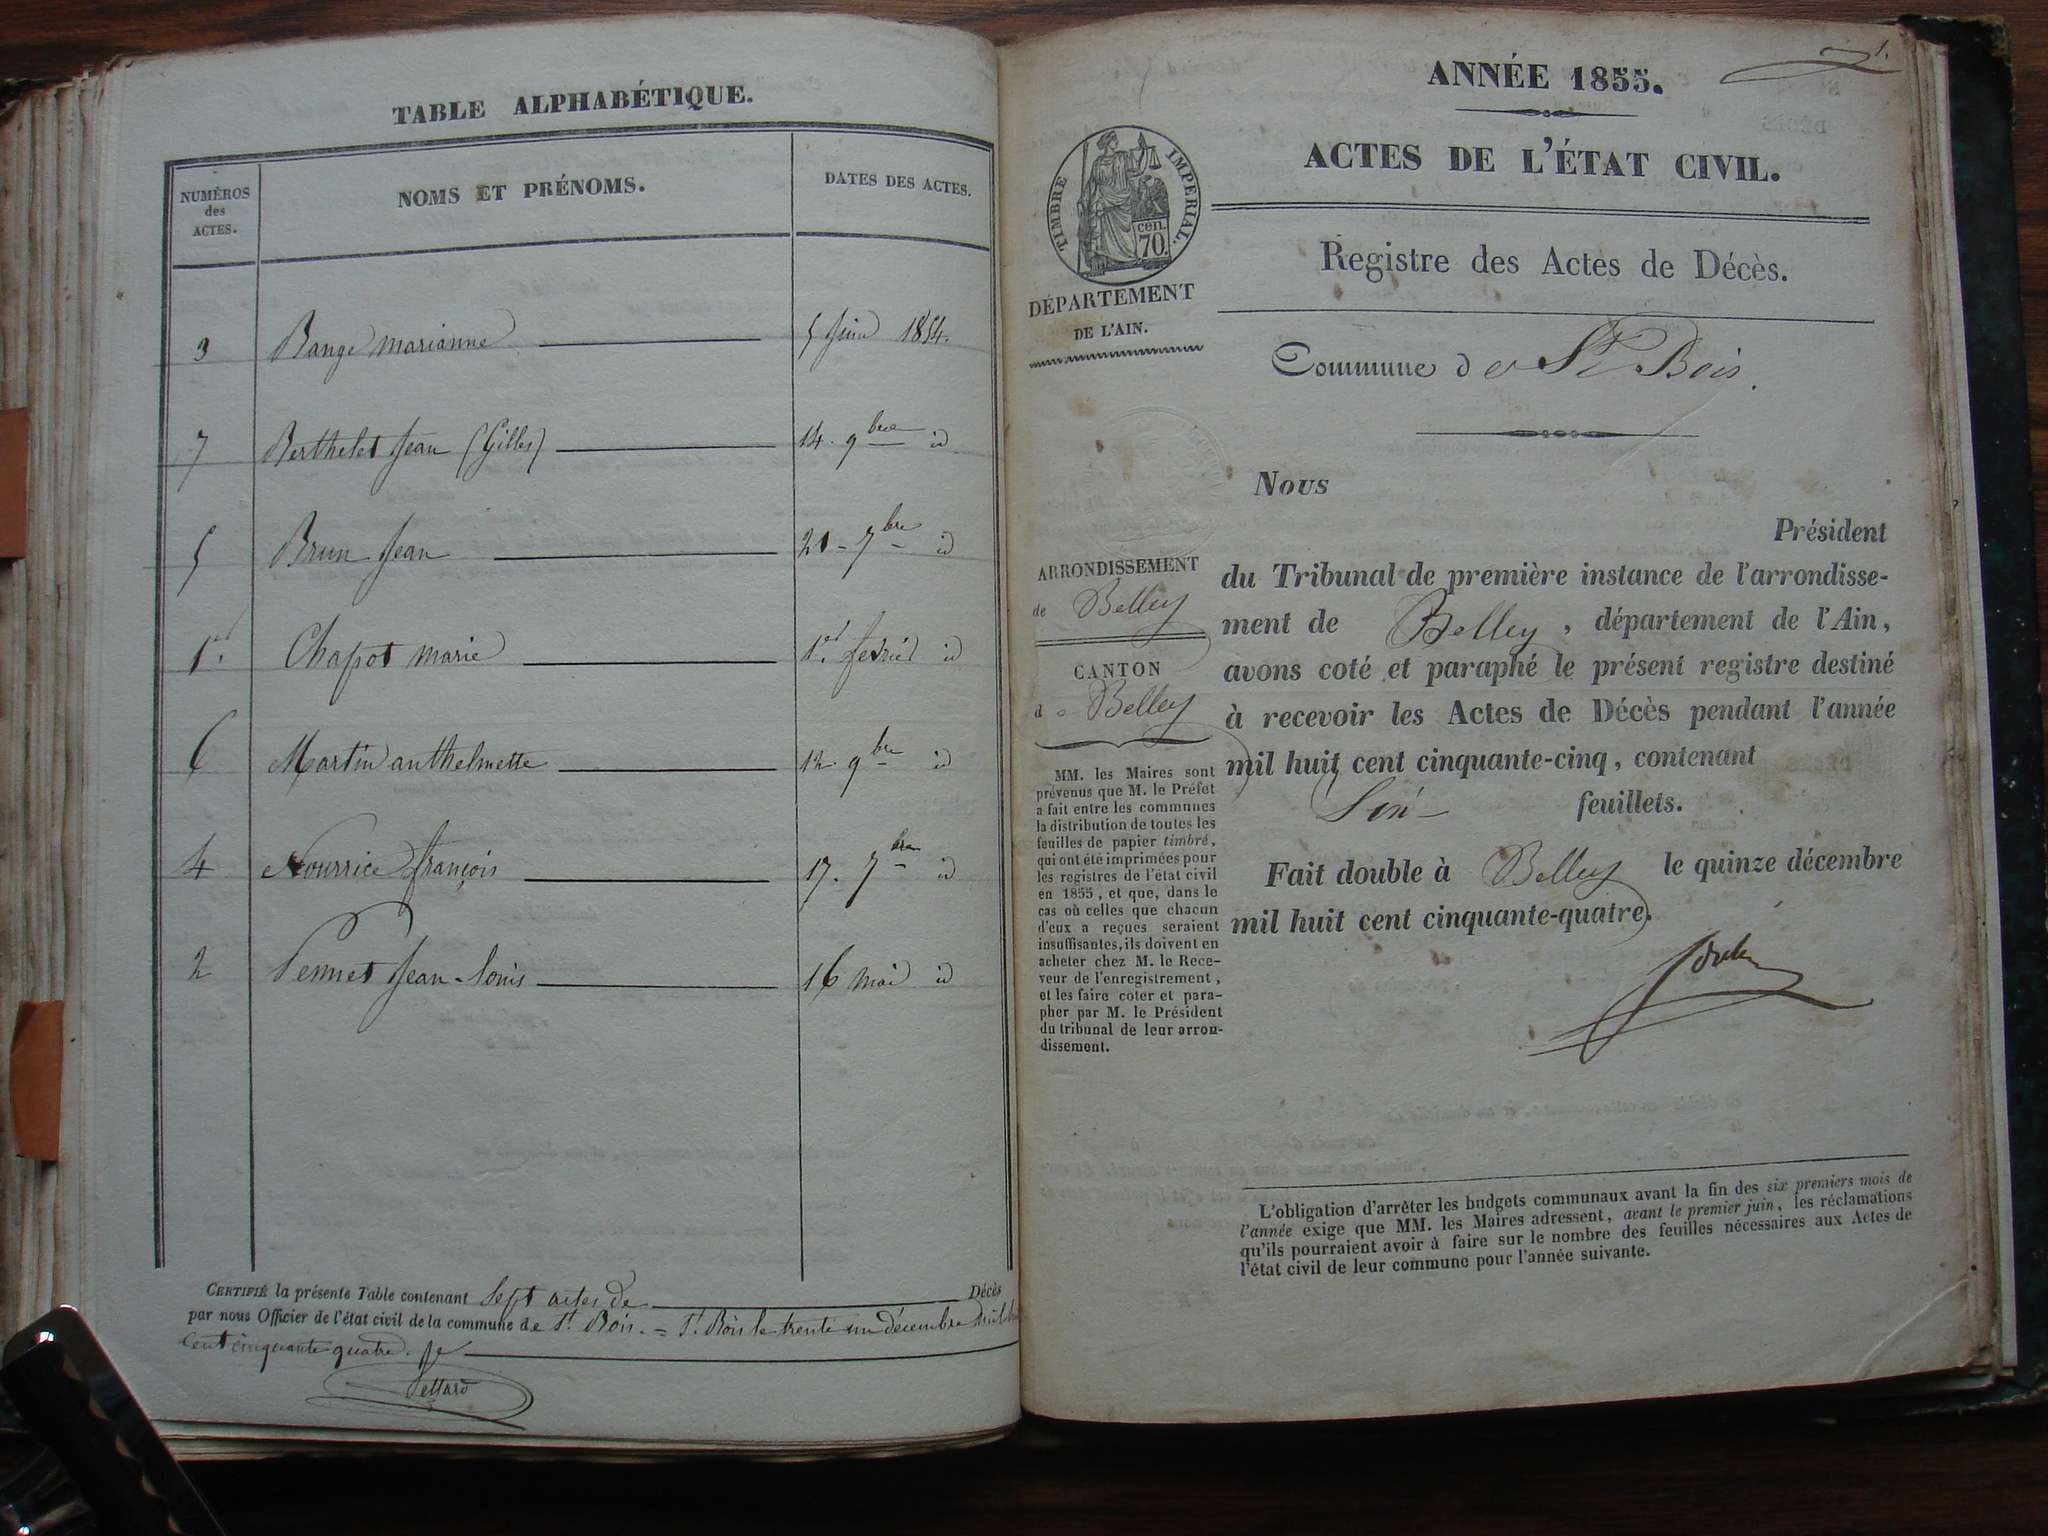 TABLE ALPHABÉTIQUE.
NUMÉROS des ACTES.
NOMS ET PRÉNOMS.
DATES DES ACTES.
3 Bange marianne 5 Juin 1854.
7 Berthelet Jean (Gilles) 14. 9bre id
5 Brun Jean 21 - 7bre id
1er. Chapot marie 1er. fevrier id
6 Martin anthelmette 12. 9bre id
4 Nourrice françois 17. 7bre id
2 Pennet Jean-Louis 16 mai id
CERTIFIÉ la présente Table contenant Sept actes de Décès
par nous Officier de l'état civil de la commune de St. Bois. = St. Bois le trente un décembre mil huit
Cent cinquante quatre.
ANNÉE 1855.
1.
ACTES DE L'ÉTAT CIVIL.
TIMBRE IMPERIAL.
cen.
70.
DÉPARTEMENT
DE L'AIN.
Registre des Actes de Décès.
Commune de St Bois.
ARRONDISSEMENT
de Belley
CANTON
de Belley
MM. les Maires sont
prévenus que M. le Préfet
a fait entre les communes
la distribution de toutes les
feuilles de papier timbré,
qui ont été imprimées pour
les registres de l'état civil
en 1855, et que, dans le
cas où celles que chacun
d'eux a reçues seraient
insuffisantes, ils doivent en
acheter chez M. le Rece-
veur de l'enregistrement,
et les faire coter et para-
pher par M. le Président
du tribunal de leur arron-
dissement.
Nous
Président
du Tribunal de première instance de l'arrondisse-
ment de Belley, département de l'Ain,
avons coté et paraphé le présent registre destiné
à recevoir les Actes de Décès pendant l'année
mil huit cent cinquante-cinq, contenant
feuillets.
Fait double à Belley le quinze décembre
mil huit cent cinquante-quatre.
L'obligation d'arrêter les budgets communaux avant la fin des six premiers mois de
l'année exige que MM. les Maires adressent, avant le premier juin, les réclamations
qu'ils pourraient avoir à faire sur le nombre des feuilles nécessaires aux Actes de
l'état civil de leur commune pour l'année suivante.